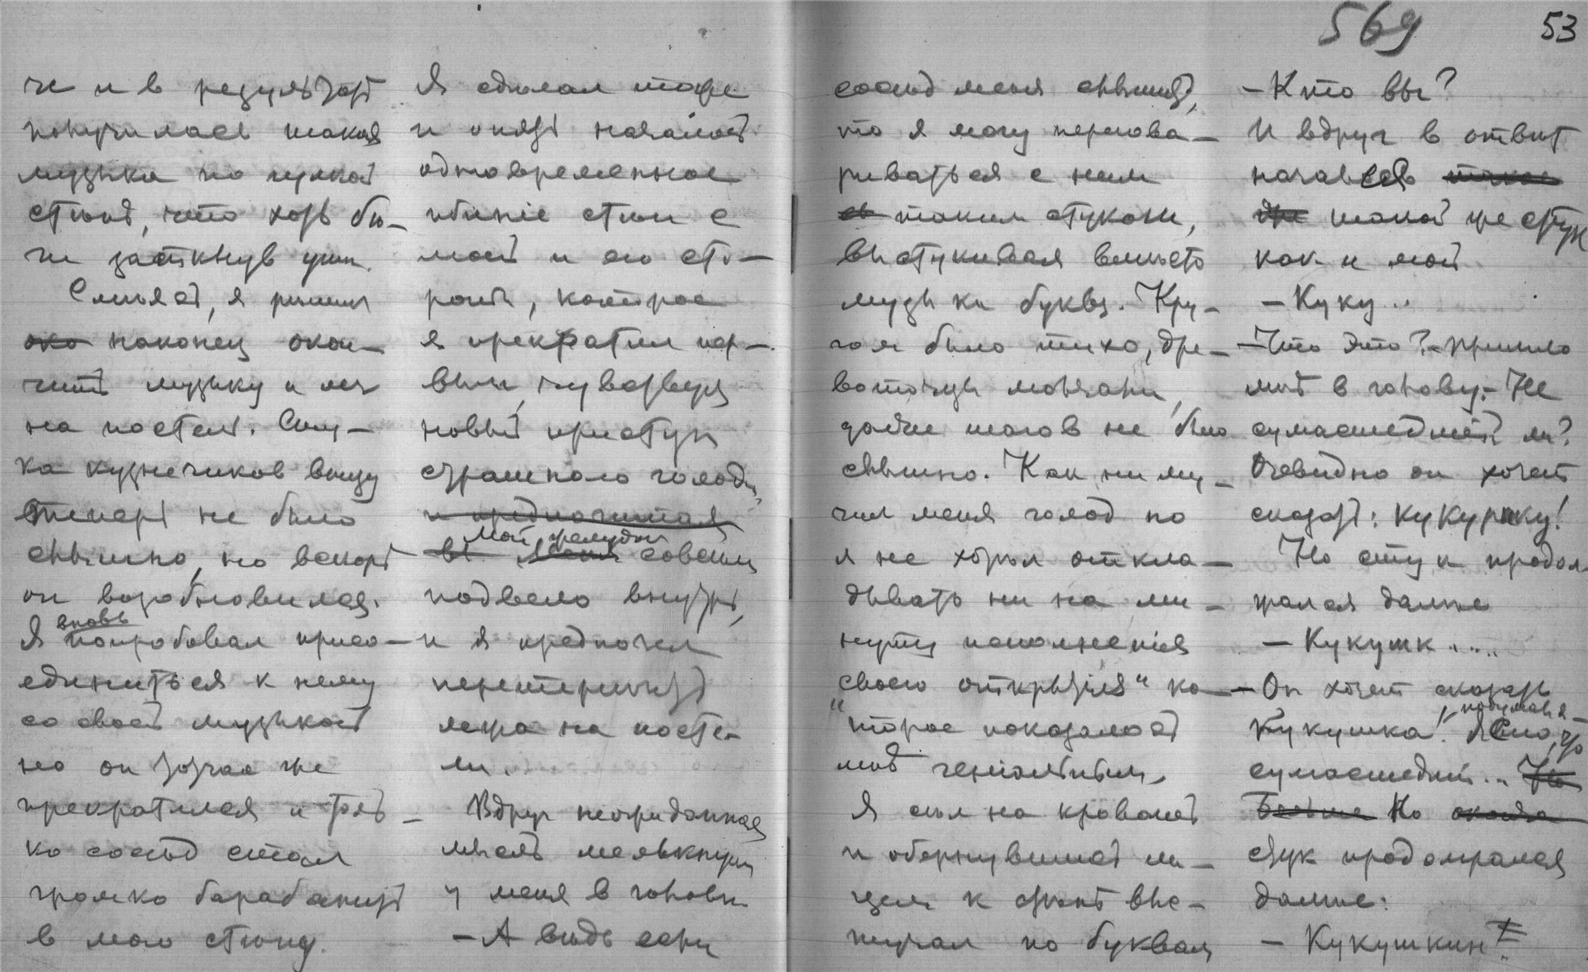 че и в результатѣ
получилась такая
музыка по чужой
стѣнѣ, что хоть бѣ-
ги заткнув уши.
Смѣясь, я рѣшил
око наконец окон-
чить музыку и леч
на постель. Сту-
ка кузнечиков внизу
теперь не было
слышно, но вскорѣ
он возобновился.
Я вновь попробовал присо-
единиться к нему
со своей музыкой
но он тотчас же
прекратился и толь-
ко сосѣд стал
громко барабанить
в мою стѣну.
Я сдѣлал тоже
и опять началось
одновременное
біеніе стѣн с
моей и его сто-
роны, которое
я прекратил пер-
вым, почувствуя
новый приступ
страшного голода,
и предпочитая
мой желудок
совсѣм
подвело внутрь,
и я предпочел
перетерпѣть
лежа на посте-
ли.
Вдруг неожиданная
мысль мелькнула
у меня в головѣ
- А вѣдь если
569 53
сосѣд меня слышит,
то я могу перегова-
риваться с ним
таким стуком,
выстукивая вмѣсто
музыки буквы. Кру-
гом было тихо,
даже шагов не было
слышно. Как ни му-
чил меня голод но
я не хотѣл откла-
дывать ни на ми-
нуту исполненія
своего „открытія" ко-
торое показалось
мнѣ геніальным.
Я сѣл на кровать
и обернувшись ли-
цем к стѣнѣ вы-
стучал по буквам
- Кто вы?
И вдруг в отвѣт
начался
такой же стук
как и мой
- Куку...
- Что это? - пришло
мнѣ в голову. - Не
сумасшедшій ли?
Очевидно он хочет
сказать: кукуреку!
Но стук продол-
жался дальше
- Кукушк....
- Он хочет сказать
Кукушка! - подумал я -
Ясно, что
сумасшедшій... Но
Больше Но
стук продолжался
дальше:
- Кукушкин